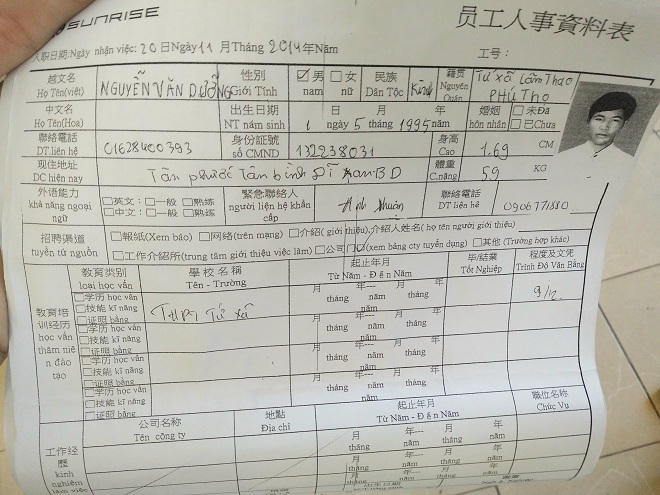 SUNRISE
员工人事資料表
入职日期:Ngày nhận việc: 20 日Ngày 11 月Tháng 2014 年Năm 工号:
越文名 Họ Tên(việt) NGUYỄN VĂN DƯỠNG 性別 Giới Tính ☑男 nam □女 nữ 民族 Dân Tộc Kinh 籍贯 Nguyên Quán Tứ xã Lâm Thao PHÚ THỌ
中文名 Họ Tên(Hoa) 出生日期 NT năm sinh 1 日 ngày 5 月 tháng 1995 年 năm 婚姻 hôn nhân □未Đã □已Chưa
聯絡電話 DT.liên hệ 01628400393 身份証號 số CMND 132238031 身高 Cao 1,69 CM
现住地址 DC hiện nay Tân phước Tân bình Dĩ An BD 體重 C.nặng 59 KG
外语能力 khả năng ngoại ngữ □英文: □一般 □熟练 □中文: □一般 □熟练 緊急聯絡人 người liên hệ khẩn cấp 聯絡電話 DT liên hệ
招聘渠道 tuyển từ nguồn □報紙(Xem báo) □网络(trên mạng) □介绍( giới thiệu),介绍人姓名( họ tên người giới thiệu)
□工作介绍所(trung tâm giới thiệu việc làm) □公司 (xem bảng cty tuyển dụng) □其他 (Trường hợp khác)
教育培训经历 học vấn thâm niên đào tạo 教育类别 loại học vấn 學校名稱 Tên - Trường 起止年月 Từ Năm - Đến Năm 毕/結業 Tốt Nghiệp 程度及文凭 Trình Độ Văn Bằng
□学历 học vấn □技能 kĩ năng □证照 bằng THPT Tứ Xã 年 năm 月 tháng --- 年 năm 月 tháng 9/12
□学历 học vấn □技能 kĩ năng □证照 bằng 年 năm 月 tháng --- 年 năm 月 tháng
□学历 học vấn □技能 kĩ năng □证照 bằng 年 năm 月 tháng --- 年 năm 月 tháng
□学历 học vấn □技能 kĩ năng □证照 bằng 年 năm 月 tháng --- 年 năm 月 tháng
工作经歷 kinh nghiệm làm việc 公司名称 Tên công ty 地點 Địa chỉ 起止年月 Từ Năm - Đến Năm 職位名称 Chức Vụ
月 tháng 年 năm --- 月 tháng 年 năm
月 tháng 年 năm --- 月 tháng 年 năm